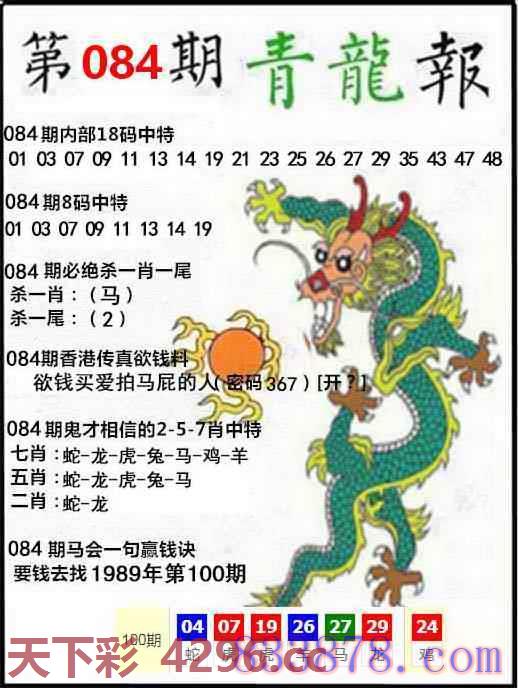 第084期青龍報
084期内部18码中特
01 03 07 09 11 13 14 19 21 23 25 26 27 29 35 43 47 48
084期8码中特
01 03 07 09 11 13 14 19
084期必绝杀一肖一尾
杀一肖：（马）
杀一尾：（2）
084期香港传真欲钱料
欲钱买爱拍马屁的人(密码367)[开?]
084期鬼才相信的2-5-7肖中特
七肖：蛇-龙-虎-兔-马-鸡-羊
五肖：蛇-龙-虎-兔-马
二肖：蛇-龙
084期马会一句赢钱诀
要钱去找1989年第100期
100期 04 07 19 26 27 29 24
蛇 虎 虎 羊 马 龙 鸡
天下彩 4296.cc